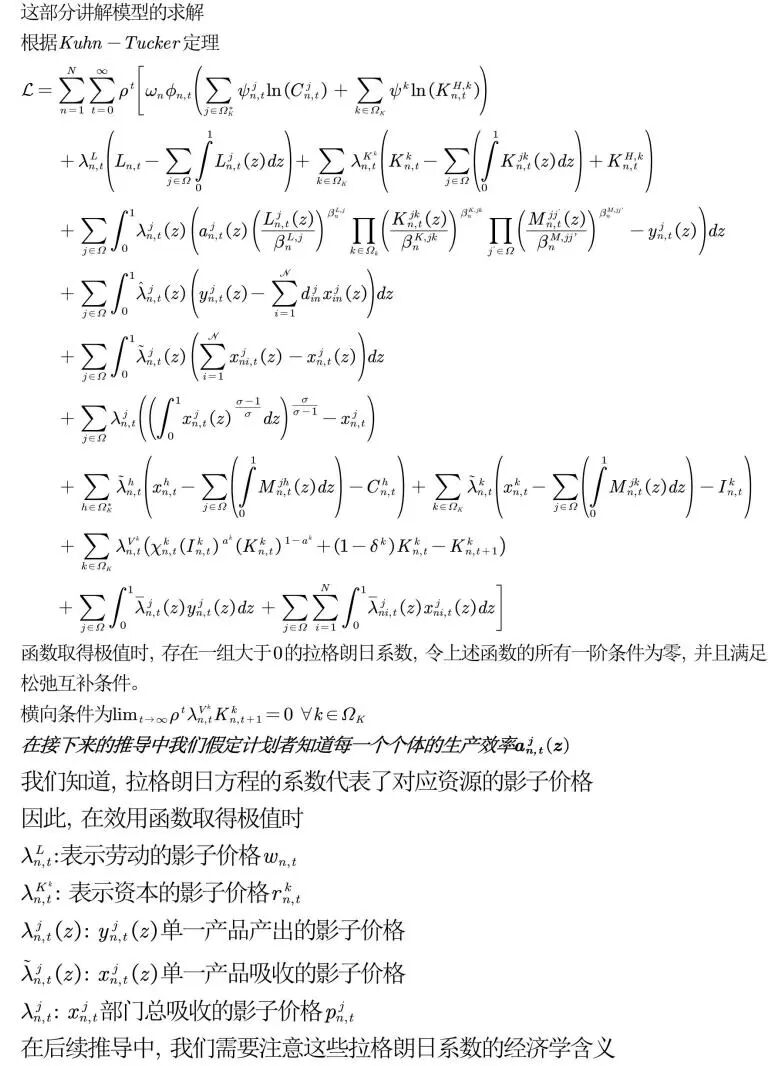 这部分讲解模型的求解
根据Kuhn − Tucker定理
$\mathcal{L} = \sum_{n=1}^{N}\sum_{t=0}^{\infty}\rho^t\Big[\omega_n\phi_{n,t}\Big(\sum_{j\in\Omega_K^*}\psi_{n,t}^j\ln(C_{n,t}^j)+\sum_{k\in\Omega_K}\psi^k\ln(K_{n,t}^{H,k})\Big)$
$+\lambda_{n,t}^L\Big(L_{n,t}-\sum_{j\in\Omega}\int_0^1 L_{n,t}^j(z)dz\Big)+\sum_{k\in\Omega_K}\lambda_{n,t}^{K^k}\Big(K_{n,t}^k-\sum_{j\in\Omega}\Big(\int_0^1 K_{n,t}^{jk}(z)dz\Big)+K_{n,t}^{H,k}\Big)$
$+\sum_{j\in\Omega}\int_0^1\lambda_{n,t}^j(z)\Big(a_{n,t}^j(z)\Big(\frac{L_{n,t}^j(z)}{\beta_n^{L,j}}\Big)^{\beta_n^{L,j}}\prod_{k\in\Omega_k}\Big(\frac{K_{n,t}^{jk}(z)}{\beta_n^{K,jk}}\Big)^{\beta_n^{K,jk}}\prod_{j'\in\Omega}\Big(\frac{M_{n,t}^{jj'}(z)}{\beta_n^{M,jj'}}\Big)^{\beta_n^{M,jj'}}-y_{n,t}^j(z)\Big)dz$
$+\sum_{j\in\Omega}\int_0^1\hat{\lambda}_{n,t}^j(z)\Big(y_{n,t}^j(z)-\sum_{i=1}^{\mathcal{N}}d_{in}^j x_{in}^j(z)\Big)dz$
$+\sum_{j\in\Omega}\int_0^1\tilde{\lambda}_{n,t}^j(z)\Big(\sum_{i=1}^{\mathcal{N}}x_{ni,t}^j(z)-x_{n,t}^j(z)\Big)dz$
$+\sum_{j\in\Omega}\lambda_{n,t}^j\Big(\Big(\int_0^1 x_{n,t}^j(z)^{\frac{\sigma-1}{\sigma}}dz\Big)^{\frac{\sigma}{\sigma-1}}-x_{n,t}^j\Big)$
$+\sum_{h\in\Omega_K^*}\tilde{\lambda}_{n,t}^h\Big(x_{n,t}^h-\sum_{j\in\Omega}\Big(\int_0^1 M_{n,t}^{jh}(z)dz\Big)-C_{n,t}^h\Big)+\sum_{k\in\Omega_K}\tilde{\lambda}_{n,t}^k\Big(x_{n,t}^k-\sum_{j\in\Omega}\Big(\int_0^1 M_{n,t}^{jk}(z)dz\Big)-I_{n,t}^k\Big)$
$+\sum_{k\in\Omega_K}\lambda_{n,t}^{V^k}(\chi_{n,t}^k(I_{n,t}^k)^{a^k}(K_{n,t}^k)^{1-a^k}+(1-\delta^k)K_{n,t}^k-K_{n,t+1}^k)$
$+\sum_{j\in\Omega}\int_0^1\bar{\lambda}_{n,t}^j(z)y_{n,t}^j(z)dz+\sum_{j\in\Omega}\sum_{i=1}^{N}\int_0^1\bar{\lambda}_{ni,t}^j(z)x_{ni,t}^j(z)dz\Big]$
函数取得极值时, 存在一组大于0的拉格朗日系数, 令上述函数的所有一阶条件为零, 并且满足
松弛互补条件。
横向条件为$\lim_{t\to\infty}\rho^t\lambda_{n,t}^{V^k}K_{n,t+1}^k=0\ \forall k\in\Omega_K$
在接下来的推导中我们假定计划者知道每一个个体的生产效率$a_{n,t}^j(z)$
我们知道, 拉格朗日方程的系数代表了对应资源的影子价格
因此, 在效用函数取得极值时
$\lambda_{n,t}^L$:表示劳动的影子价格$w_{n,t}$
$\lambda_{n,t}^{K^k}$: 表示资本的影子价格$r_{n,t}^k$
$\lambda_{n,t}^j(z)$: $y_{n,t}^j(z)$单一产品产出的影子价格
$\tilde{\lambda}_{n,t}^j(z)$: $x_{n,t}^j(z)$单一产品吸收的影子价格
$\lambda_{n,t}^j$: $x_{n,t}^j$部门总吸收的影子价格$p_{n,t}^j$
在后续推导中, 我们需要注意这些拉格朗日系数的经济学含义